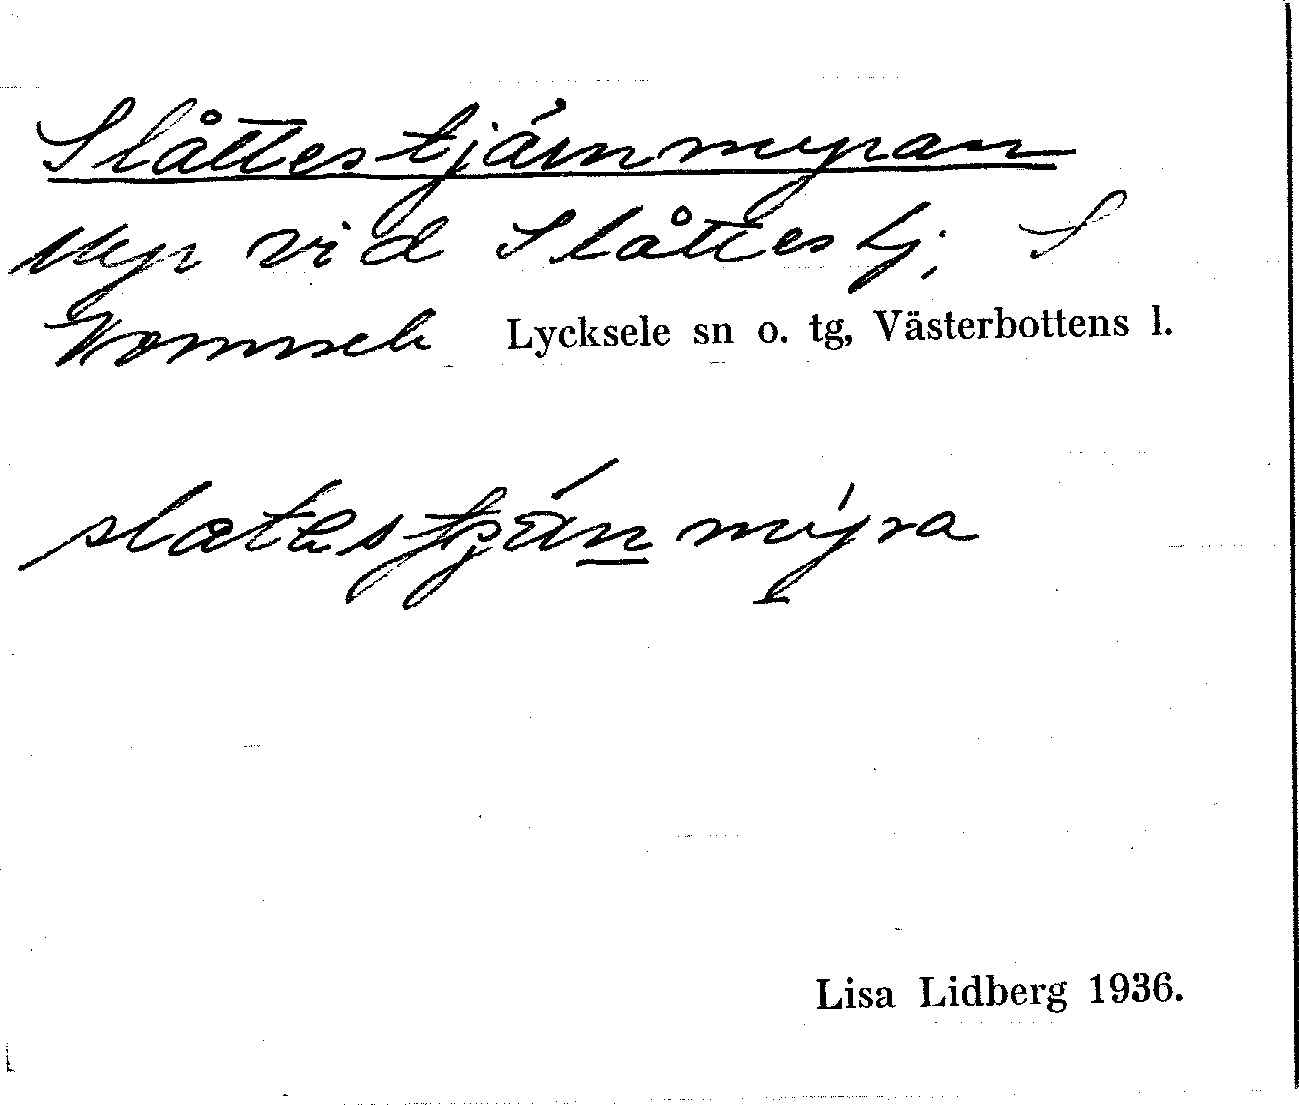 Slåttestjärnmyran
Myr vid Slåttestj. S
Vormsele Lycksele sn o. tg, Västerbottens l.
myra
Lisa Lidberg 1936.